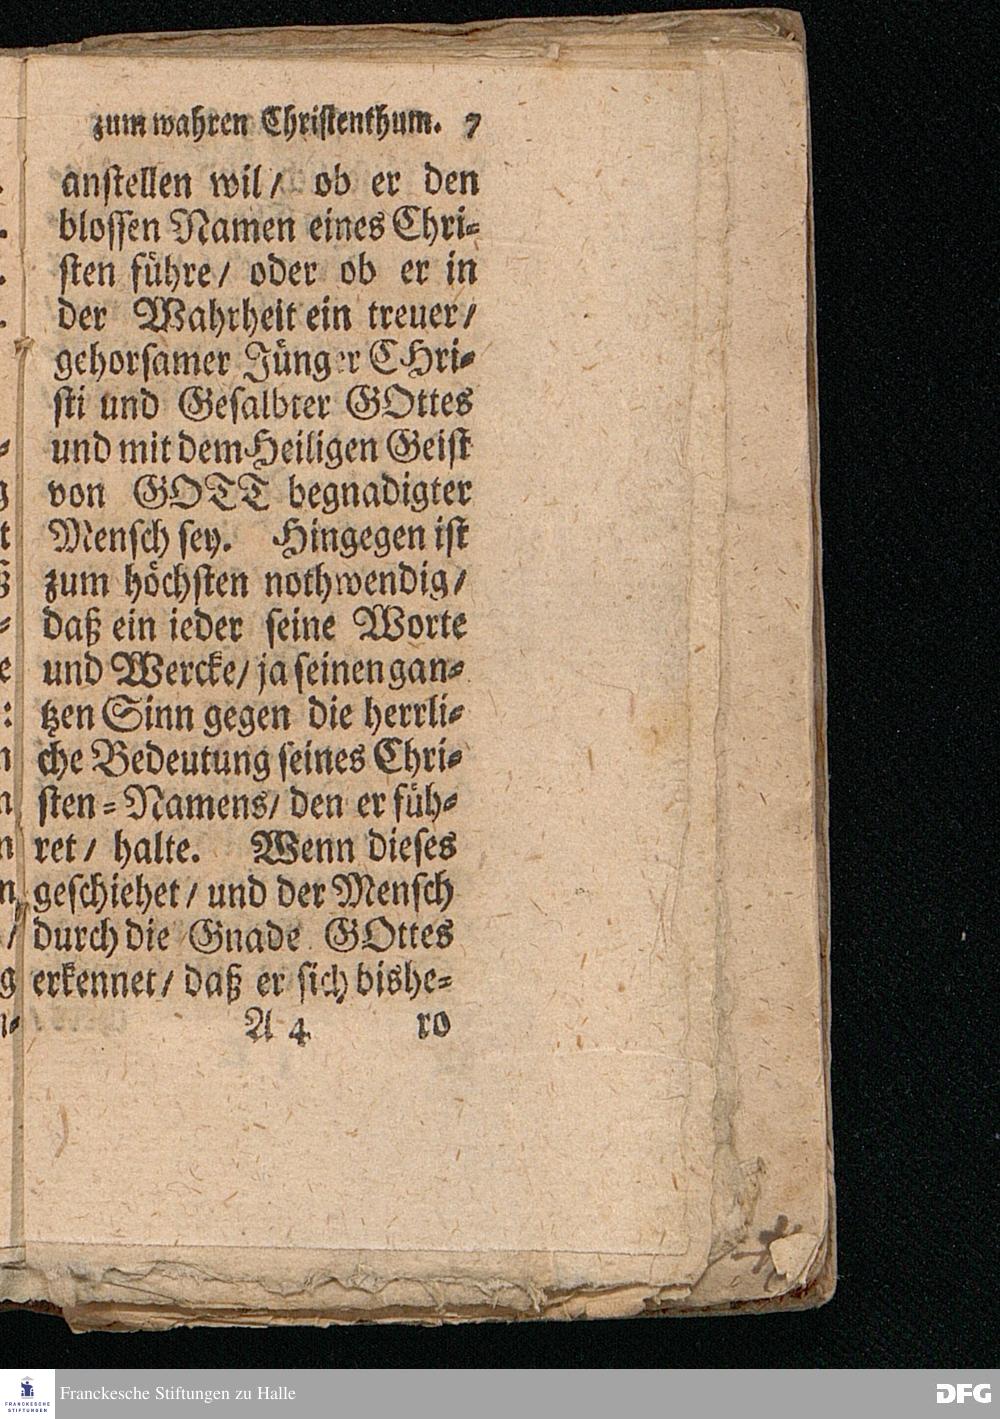 zum wahren Christenthum. 7
anstellen wil / ob er den
blossen Namen eines Chri-
sten führe / oder ob er in
der Wahrheit ein treuer /
gehorsamer Jünger CHri-
sti und Gesalbter GOttes
und mit dem Heiligen Geist
von GOTT begnadigter
Mensch sey. Hingegen ist
zum höchsten nothwendig /
daß ein ieder seine Worte
und Wercke / ja seinen gan-
tzen Sinn gegen die herrli-
che Bedeutung seines Chri-
sten-Namens / den er füh-
ret / halte. Wenn dieses
geschiehet / und der Mensch
durch die Gnade GOttes
erkennet / daß er sich bishe-
A 4 ro
FRANCKESCHE
STIFTUNGEN
Franckesche Stiftungen zu Halle
DFG